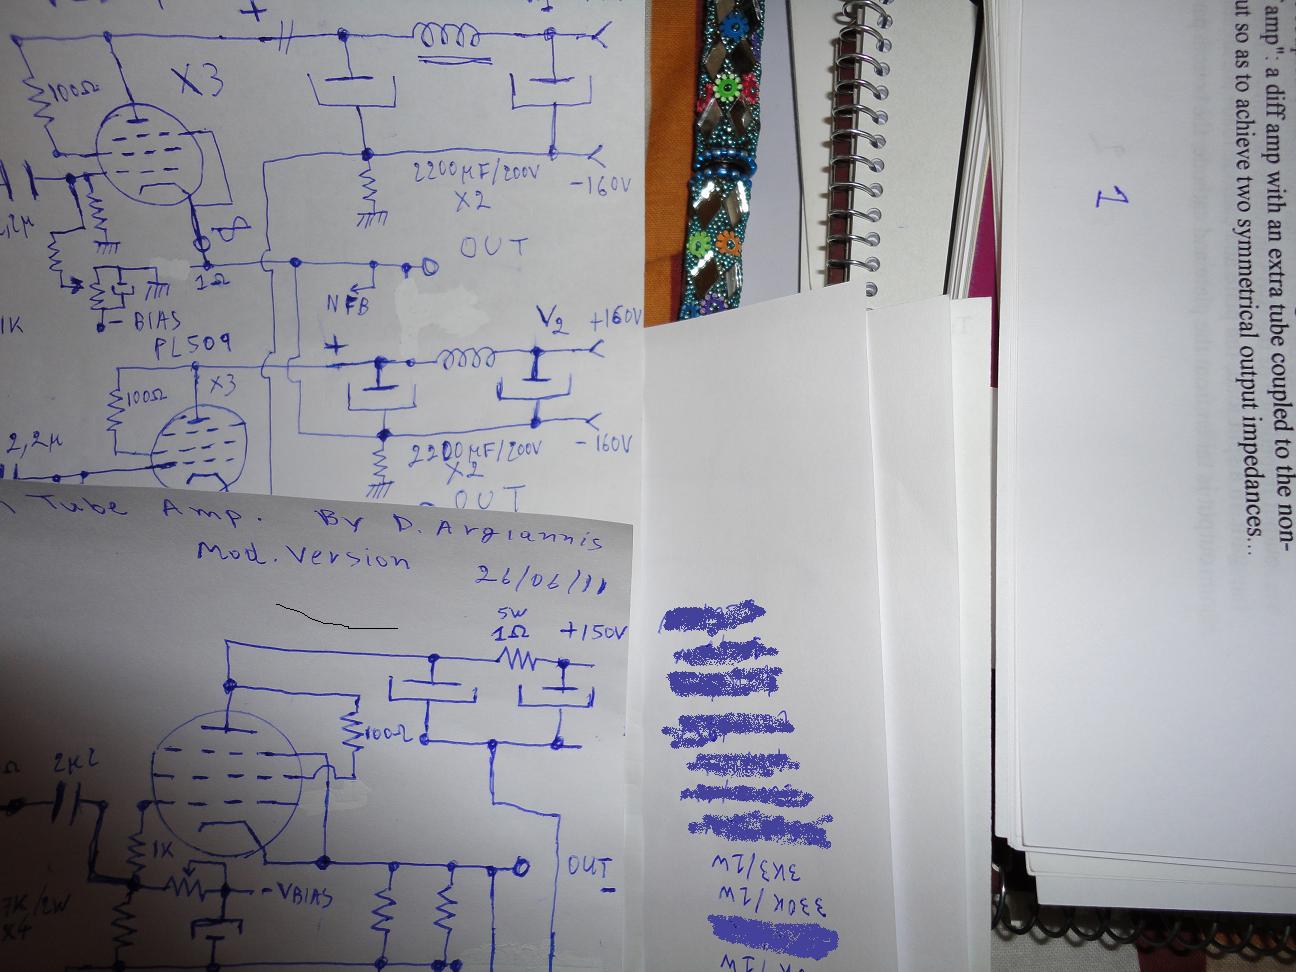 +
100Ω
X3
2200µF/200V
X2
-160V
1Ω
OUT
NFB
- BIAS
1K
PL509
V2
+160V
+
100Ω
X3
2,2µ
2200µF/200V
X2
-160V
OUT
Tube Amp. By D. Argiannis
Mod. Version
26/06/11
5W
1Ω
+150V
100Ω
Ω
2µ2
1K
-VBIAS
OUT
7K/2W
X4
3K3/1W
330K/1W
K/1W
1
amp": a diff amp with an extra tube coupled to the non-
ut so as to achieve two symmetrical output impedances...